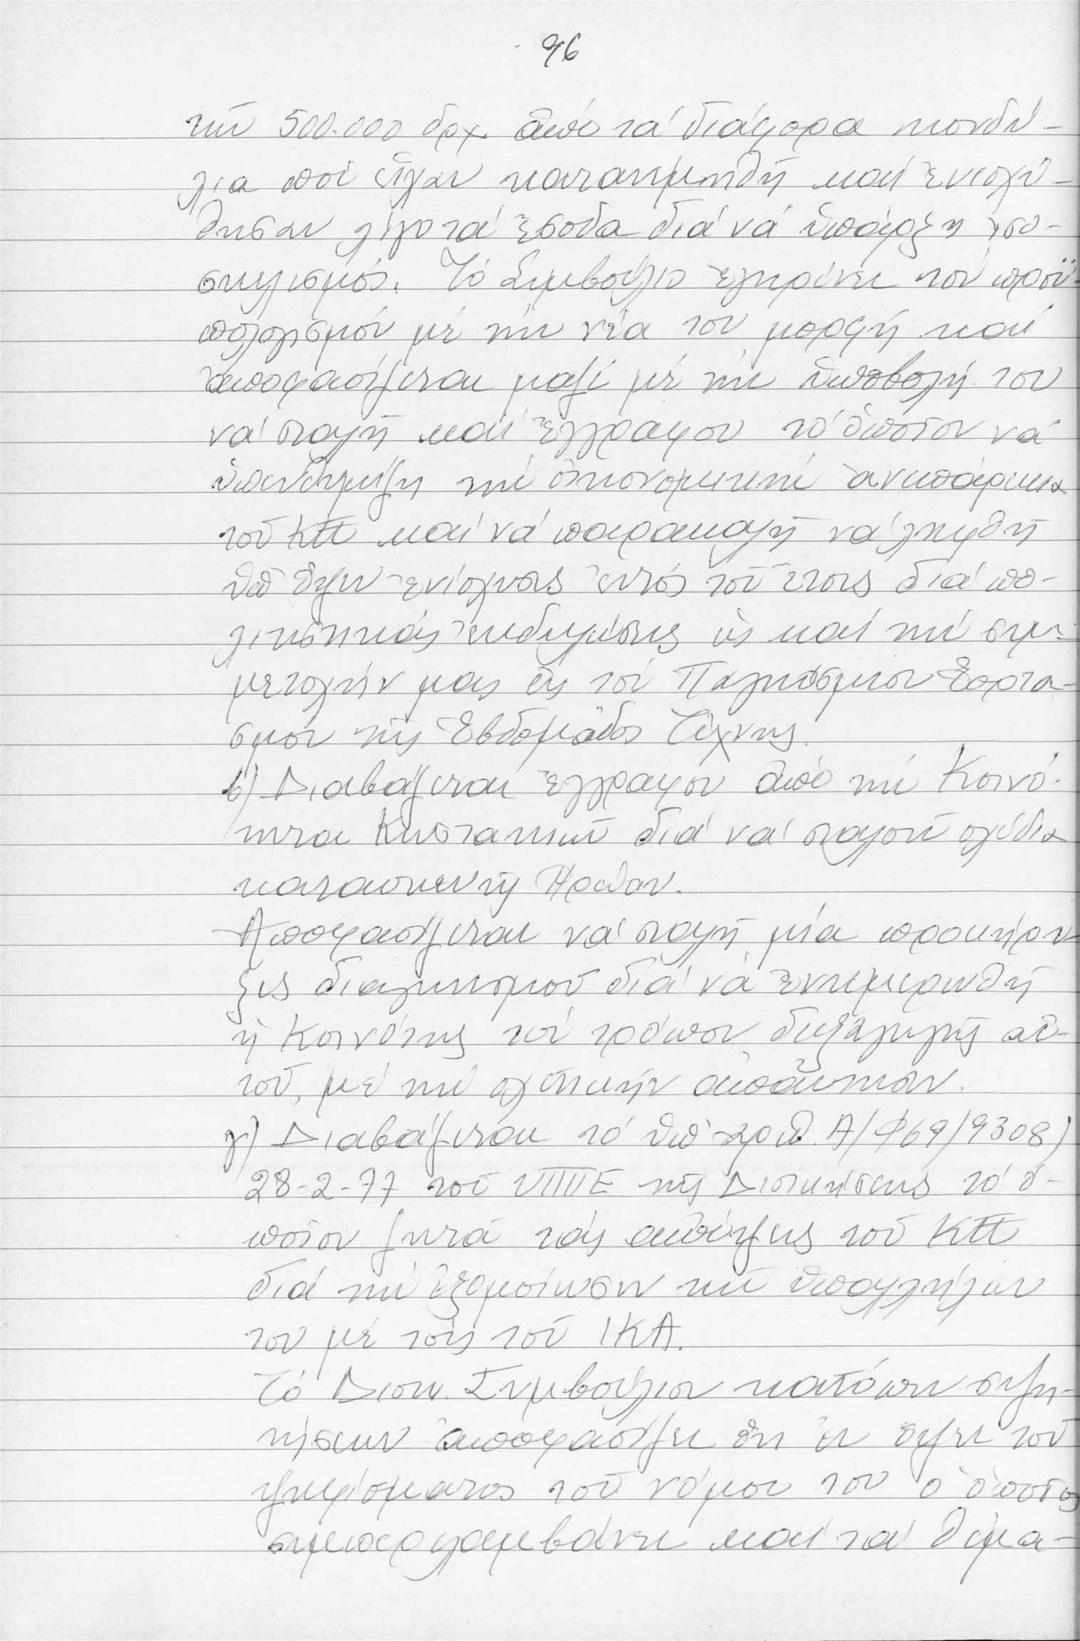 96
τῶν 500.000 δρχ. ἀπό τά διάφορα κονδύ-
λια πού εἶχαν κατανεμηθῆ καί ἐνισχύ-
θησαν λίγο τά ἔσοδα διά νά ὑπάρξη ἰσο-
σκελισμός. Τό Συμβούλιο ἐγκρίνει τόν προϋ-
πολογισμόν μέ τήν νέα του μορφή καί
ἀποφασίζεται μαζί μέ τήν ὑποβολή του
νά σταλῆ καί ἔγγραφον τό ὁποῖον νά
ὑπενθυμίζη τήν οἰκονομική ἀνεπάρκεια
τοῦ ΚΠ καί νά παρακαλῆ νά ληφθῆ
ὑπ' ὄψιν ἐνίσχυσις ἐντός τοῦ ἔτους διά πο-
λιτιστικάς ἐκδηλώσεις ὡς καί τήν συμ-
μετοχήν μας εἰς τόν Παγκόσμιον Ἑορτα-
σμόν τῆς Ἑβδομάδος Τέχνης.
β) Διαβάζεται ἔγγραφον ἀπό τήν Κοινό-
τητα διά νά σταλοῦν σχέδια
κατασκευῆς Ἡρώου.
Ἀποφασίζεται νά σταλῆ μία προκήρυ-
ξις διαγωνισμοῦ διά νά ἐνημερωθῆ
ἡ Κοινότης τόν τρόπον διεξαγωγῆς αὐ-
τοῦ, μέ τήν σχετικήν ἀπάντησιν.
γ) Διαβάζεται τό ὑπ' ἀριθ. Α/Φ69/9308/
28-2-77 τοῦ ΥΠΠΕ τῆς Διοικήσεως τό ὁ-
ποῖον ζητᾶ τάς ἀπόψεις τοῦ ΚΠ
διά τήν ἐξομοίωσιν τῶν ὑπαλλήλων
του μέ τούς τοῦ ΙΚΑ.
Τό Διοικ. Συμβούλιον κατόπιν συζη-
τήσεων ἀποφασίζει ὅτι ἐν ὄψει τοῦ
ψηφίσματος τοῦ νόμου του ὁ ὁποῖος
συμπεριλαμβάνει καί τά θέμα-